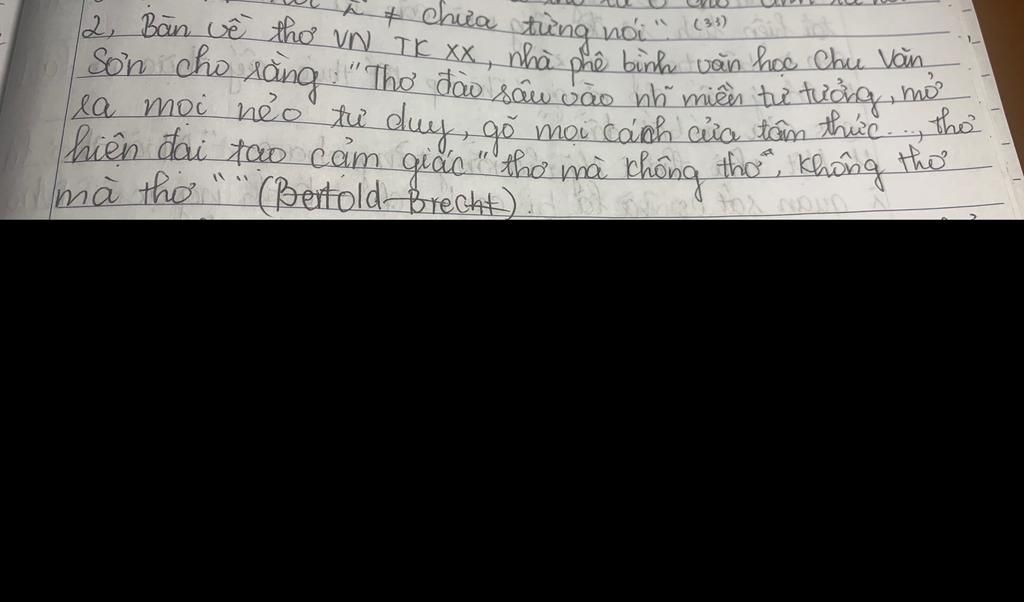 ≠ chưa từng nói" (33)
2, Bàn về thơ VN TK XX, nhà phê bình văn học Chu Văn
Sơn cho rằng "Thơ đào sâu vào nh~ miền tư tưởng, mở
ra mọi nẻo tư duy, gõ mọi cánh cửa tâm thức..., thơ
hiện đại tạo cảm giác "thơ mà không thơ", không thơ
mà thơ"" (Bertold Brecht).